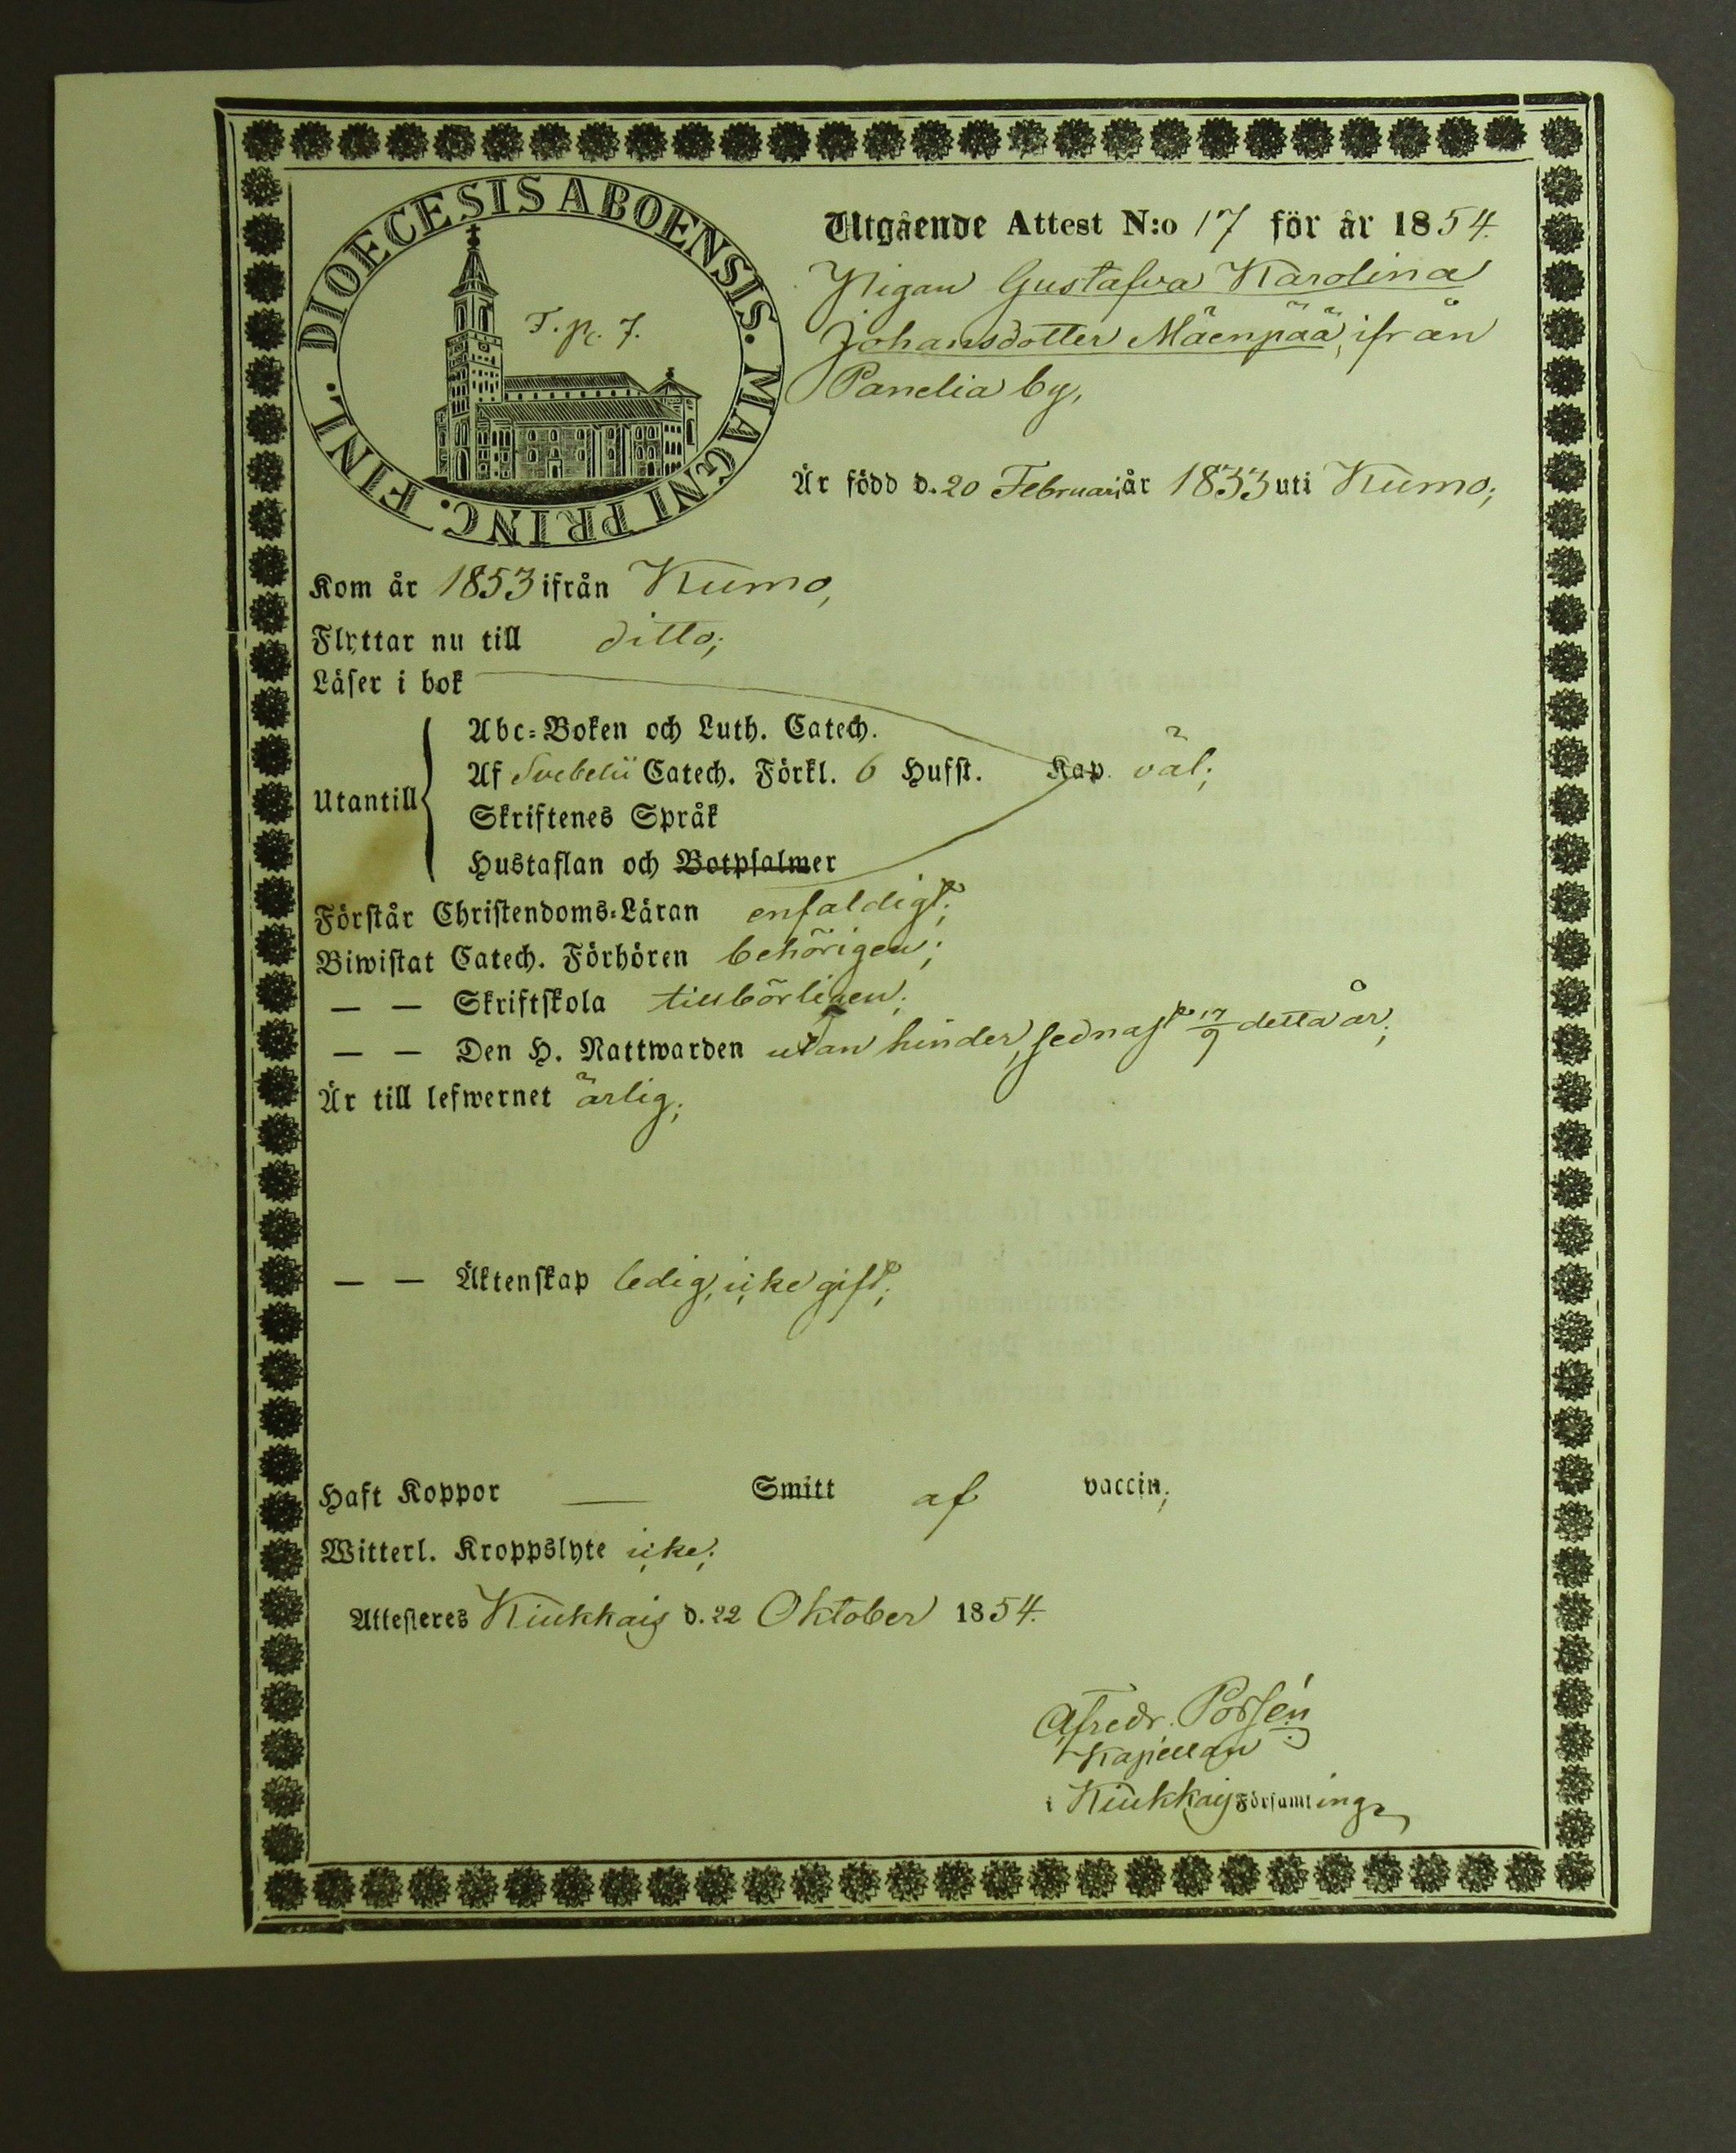 DIOECESIS ABOENSIS. MAGNI PRINC. FINL.
T. p. 7.
Utgående Attest N:o 17 för år 1854.
Pigan Gustafva Karolina
Johansdotter Mäenpää, ifrån
Panelia by,
Är född d. 20 Februarii år 1833 uti Kumo;
Kom år 1853 ifrån Kumo,
Flyttar nu till ditto;
Läser i bok
Abc-Boken och Luth. Catech.
Utantill Af Svebelii Catech. Förkl. 6 Hufst. Kap. väl;
Skriftenes Språk
Hustaflan och Botpsalmer
Förstår Christendoms-Läran enfaldigt;
Biwistat Catech. Förhören behörigen;
— — Skriftskola tillbörligen;
— — Den H. Nattwarden utan hinder, sednast 17/9 detta år;
Är till lefwernet ärlig;
— — Äktenskap ledig, icke gift;
Haft Koppor — Smitt af vaccin;
Witterl. Kroppslyte icke;
Attesteres Kiukkais d. 22 Oktober 1854.
Fredr. Polsén
Kapellan
i Kiukkais Församling